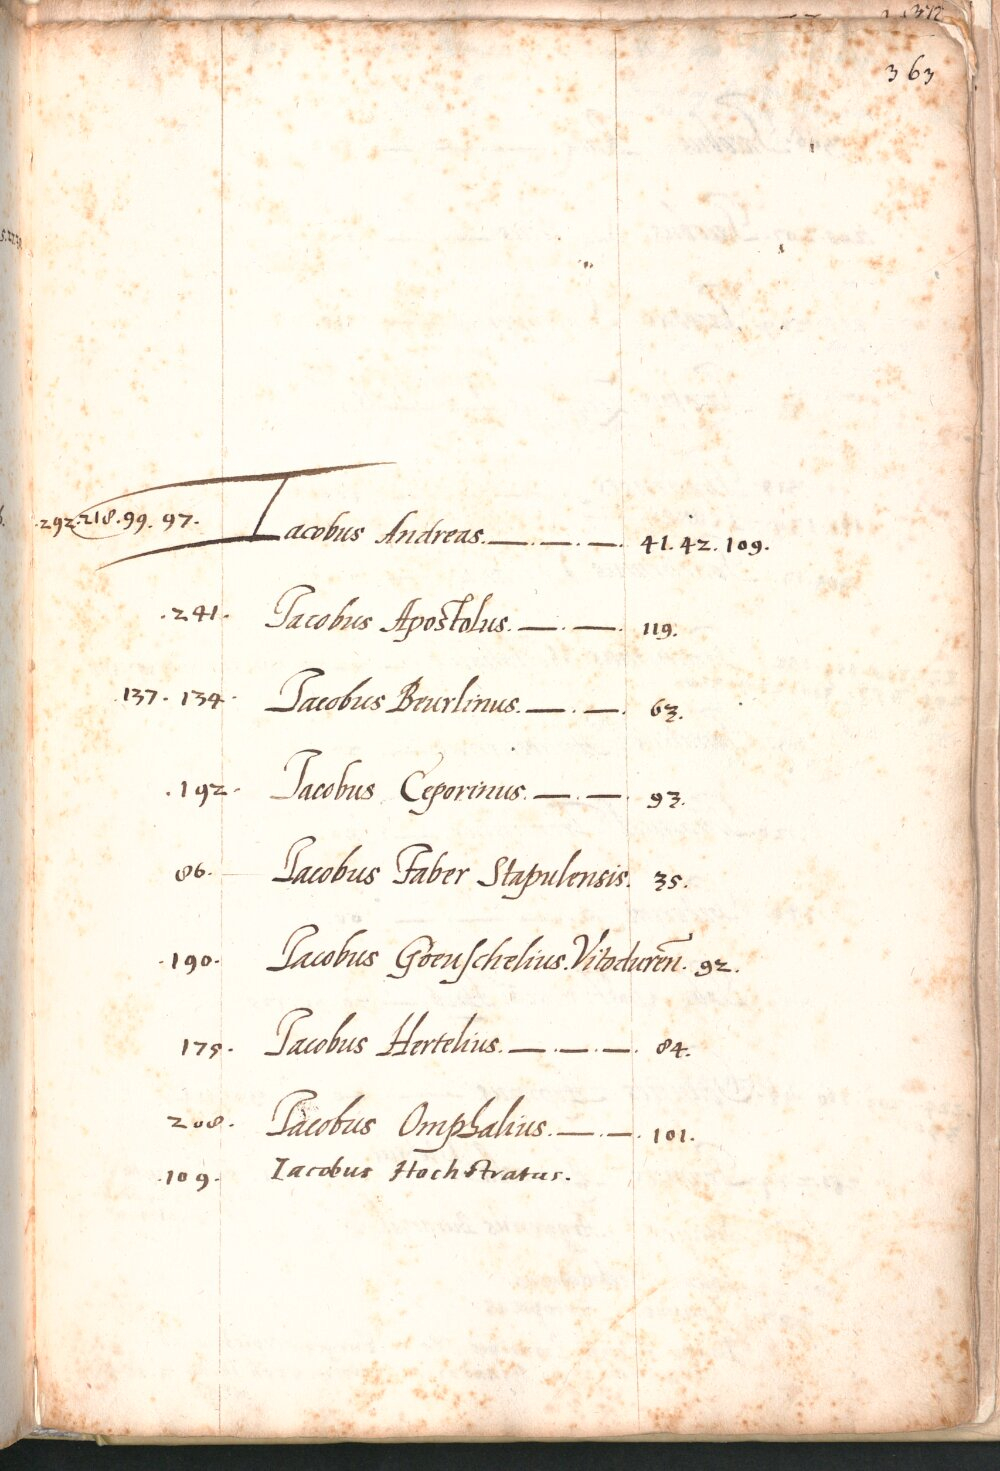 363
.292.218.99.97. Iacobus Andreas. 41.42.109.
.241. Iacobus Apostolus. 119.
.137.134. Iacobus Beurlinus. 63.
.192. Iacobus Ceporinus. 93.
86. Iacobus Faber Stapulensis. 35.
.190. Iacobus Goeuschelius. Vitoduren̄. 92.
175. Iacobus Hertelius. 84.
208. Iacobus Omphalius. 101.
.109. Iacobus Hochstratus.